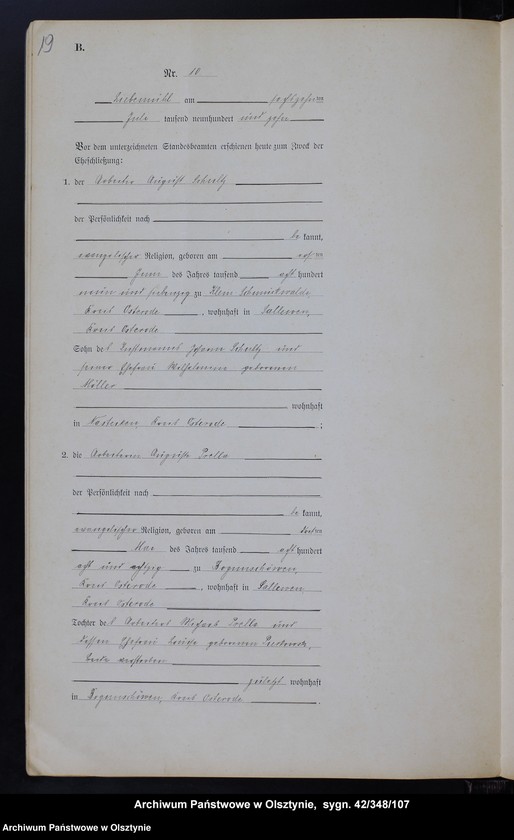 19
B.
Nr. 10
Liebemühl am sechszehnten
Juli tausend neunhundert und zehn
Vor dem unterzeichneten Standesbeamten erschienen heute zum Zweck der
Eheschließung:
1. der Arbeiter August Schultz
der Persönlichkeit nach
be kannt,
evangelischer Religion, geboren am
Juni des Jahres tausend acht hundert
neun und siebenzig zu Klein Schmückwalde,
Kreis Osterode, wohnhaft in Sallewen,
Kreis Osterode
Sohn des Instmanns Johann Schultz und
seiner Ehefrau Wilhelmine geborenen
Möller
wohnhaft
in Kreis Osterode;
2. die Arbeiterin Auguste
der Persönlichkeit nach
be kannt,
evangelischer Religion, geboren am
Mai des Jahres tausend acht hundert
acht und achtzig zu
Kreis Osterode, wohnhaft in Sallewen,
Kreis Osterode
Tochter des Arbeiters und
dessen Ehefrau Louise geborenen
beide verstorben
zuletzt wohnhaft
in Kreis Osterode.
Archiwum Państwowe w Olsztynie, sygn. 42/348/107
Archiwum Państwowe w Olsztynie